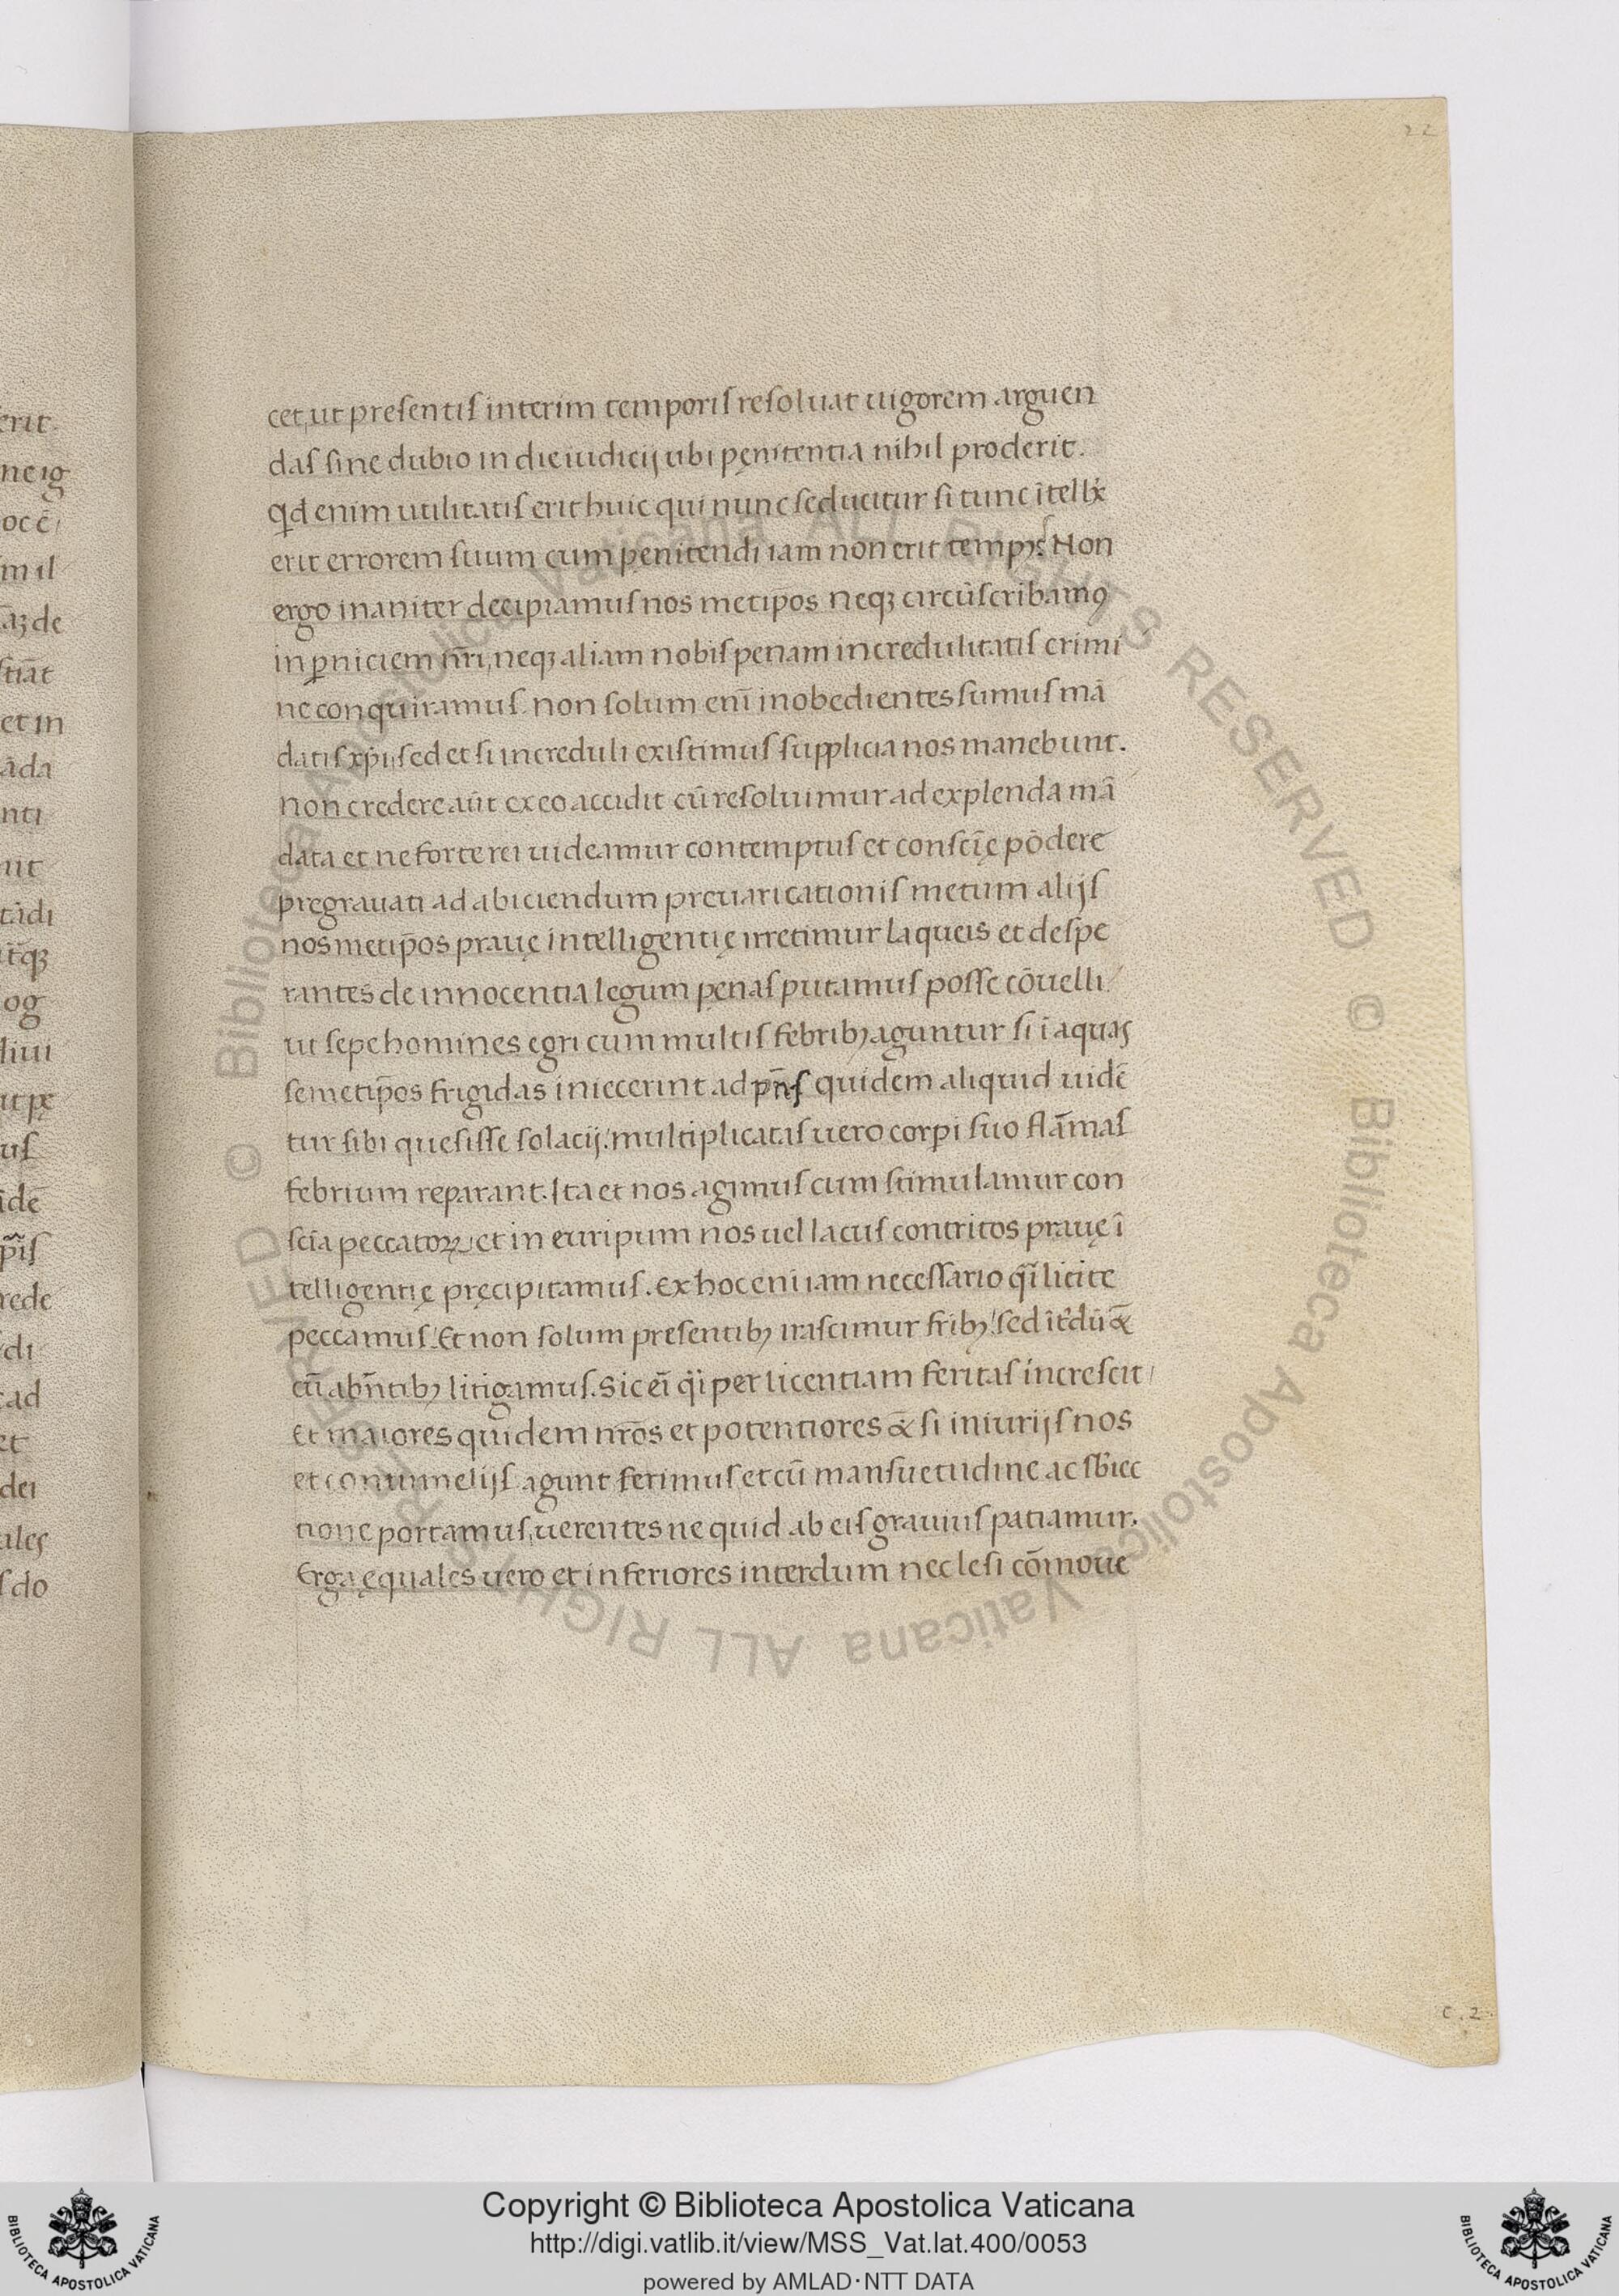 22
cet, ut presentis interim temporis resoluat uigorem arguen
das sine dubio in die iudicij ubi pęnitentia nihil proderit.
qd enim utilitatis erit huic qui nunc seducitur si tunc ītellx̄
erit errorem suum cum pęnitendi iam non erit tempꝰ? Non
ergo inaniter decipiamus nos metip̄os neqꝫ circūscribamꝰ
in ꝑniciem nr̄i, neqꝫ aliam nobis penam incredulitatis crimi
ne conquiramus. non solum enī inobedientes sumus mā
datis xp̄i, sed et si increduli existimus supplicia nos manebunt.
non credere aūt ex eo accidit cū resoluimur ad explenda mā
data et ne forte rei uideamur contemptus et conscię̄ pōdere
pregrauati ad abiciendum preuaricationis metum alijs
nos metip̄os prauę intelligentię irretimur laqueis et despe
rantes de innocentia legum pęnas putamus posse cōuelli
ut sepe homines egri cum multis febribꝫ aguntur si ī aquas
semetip̄os frigidas iniecerint ad pn̄s quidem aliquid uidē
tur sibi quesisse solacij: multiplicatas uero corpi suo flāmas
febrium reparant. Ita et nos agimus cum stimulamur con
scīa peccatoꝝ et in euripum nos uel lacus contritos prauę ī
telligentię pręcipitamus. Ex hoc eni iam necessario qī licite
peccamus. Et non solum presentibꝫ irascimur fribꝫ! sed īt'dū &
cū abn̄tibꝫ litigamus. Sic eī qī per licentiam feritas increscit
Et maiores quidem nr̄os et potentiores & si iniurijs nos
et contumelijs agunt ferimus et cū mansuetudine ac sb'iec
tione portamus, uerentes ne quid ab eis grauius patiamur.
Erga ęquales uero et inferiores interdum nec lesi cōmoue
c. 2
erit.
ne ig
oc ē
mil
de
stiāt
et in
āda
nti
nt
tādi
og
us
īdē
rede
di
ad
et
dei
ales
s do
© Biblioteca Apostolica Vaticana ALL RIGHTS RESERVED © Biblioteca Apostolica Vaticana ALL RIGHTS RESERVED
Copyright © Biblioteca Apostolica Vaticana
http://digi.vatlib.it/view/MSS_Vat.lat.400/0053
powered by AMLAD·NTT DATA
BIBLIOTECA APOSTOLICA VATICANA
BIBLIOTECA APOSTOLICA VATICANA